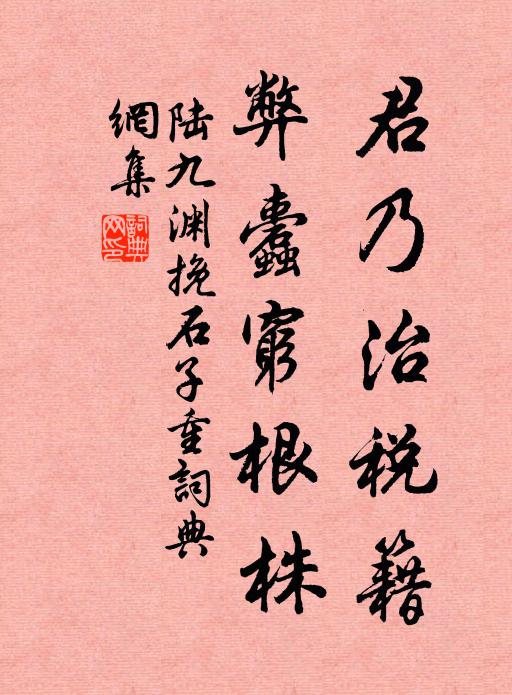 君乃治税籍
弊蠹窮根株
陆九渊挽石子重詞典
網集
詞典网印